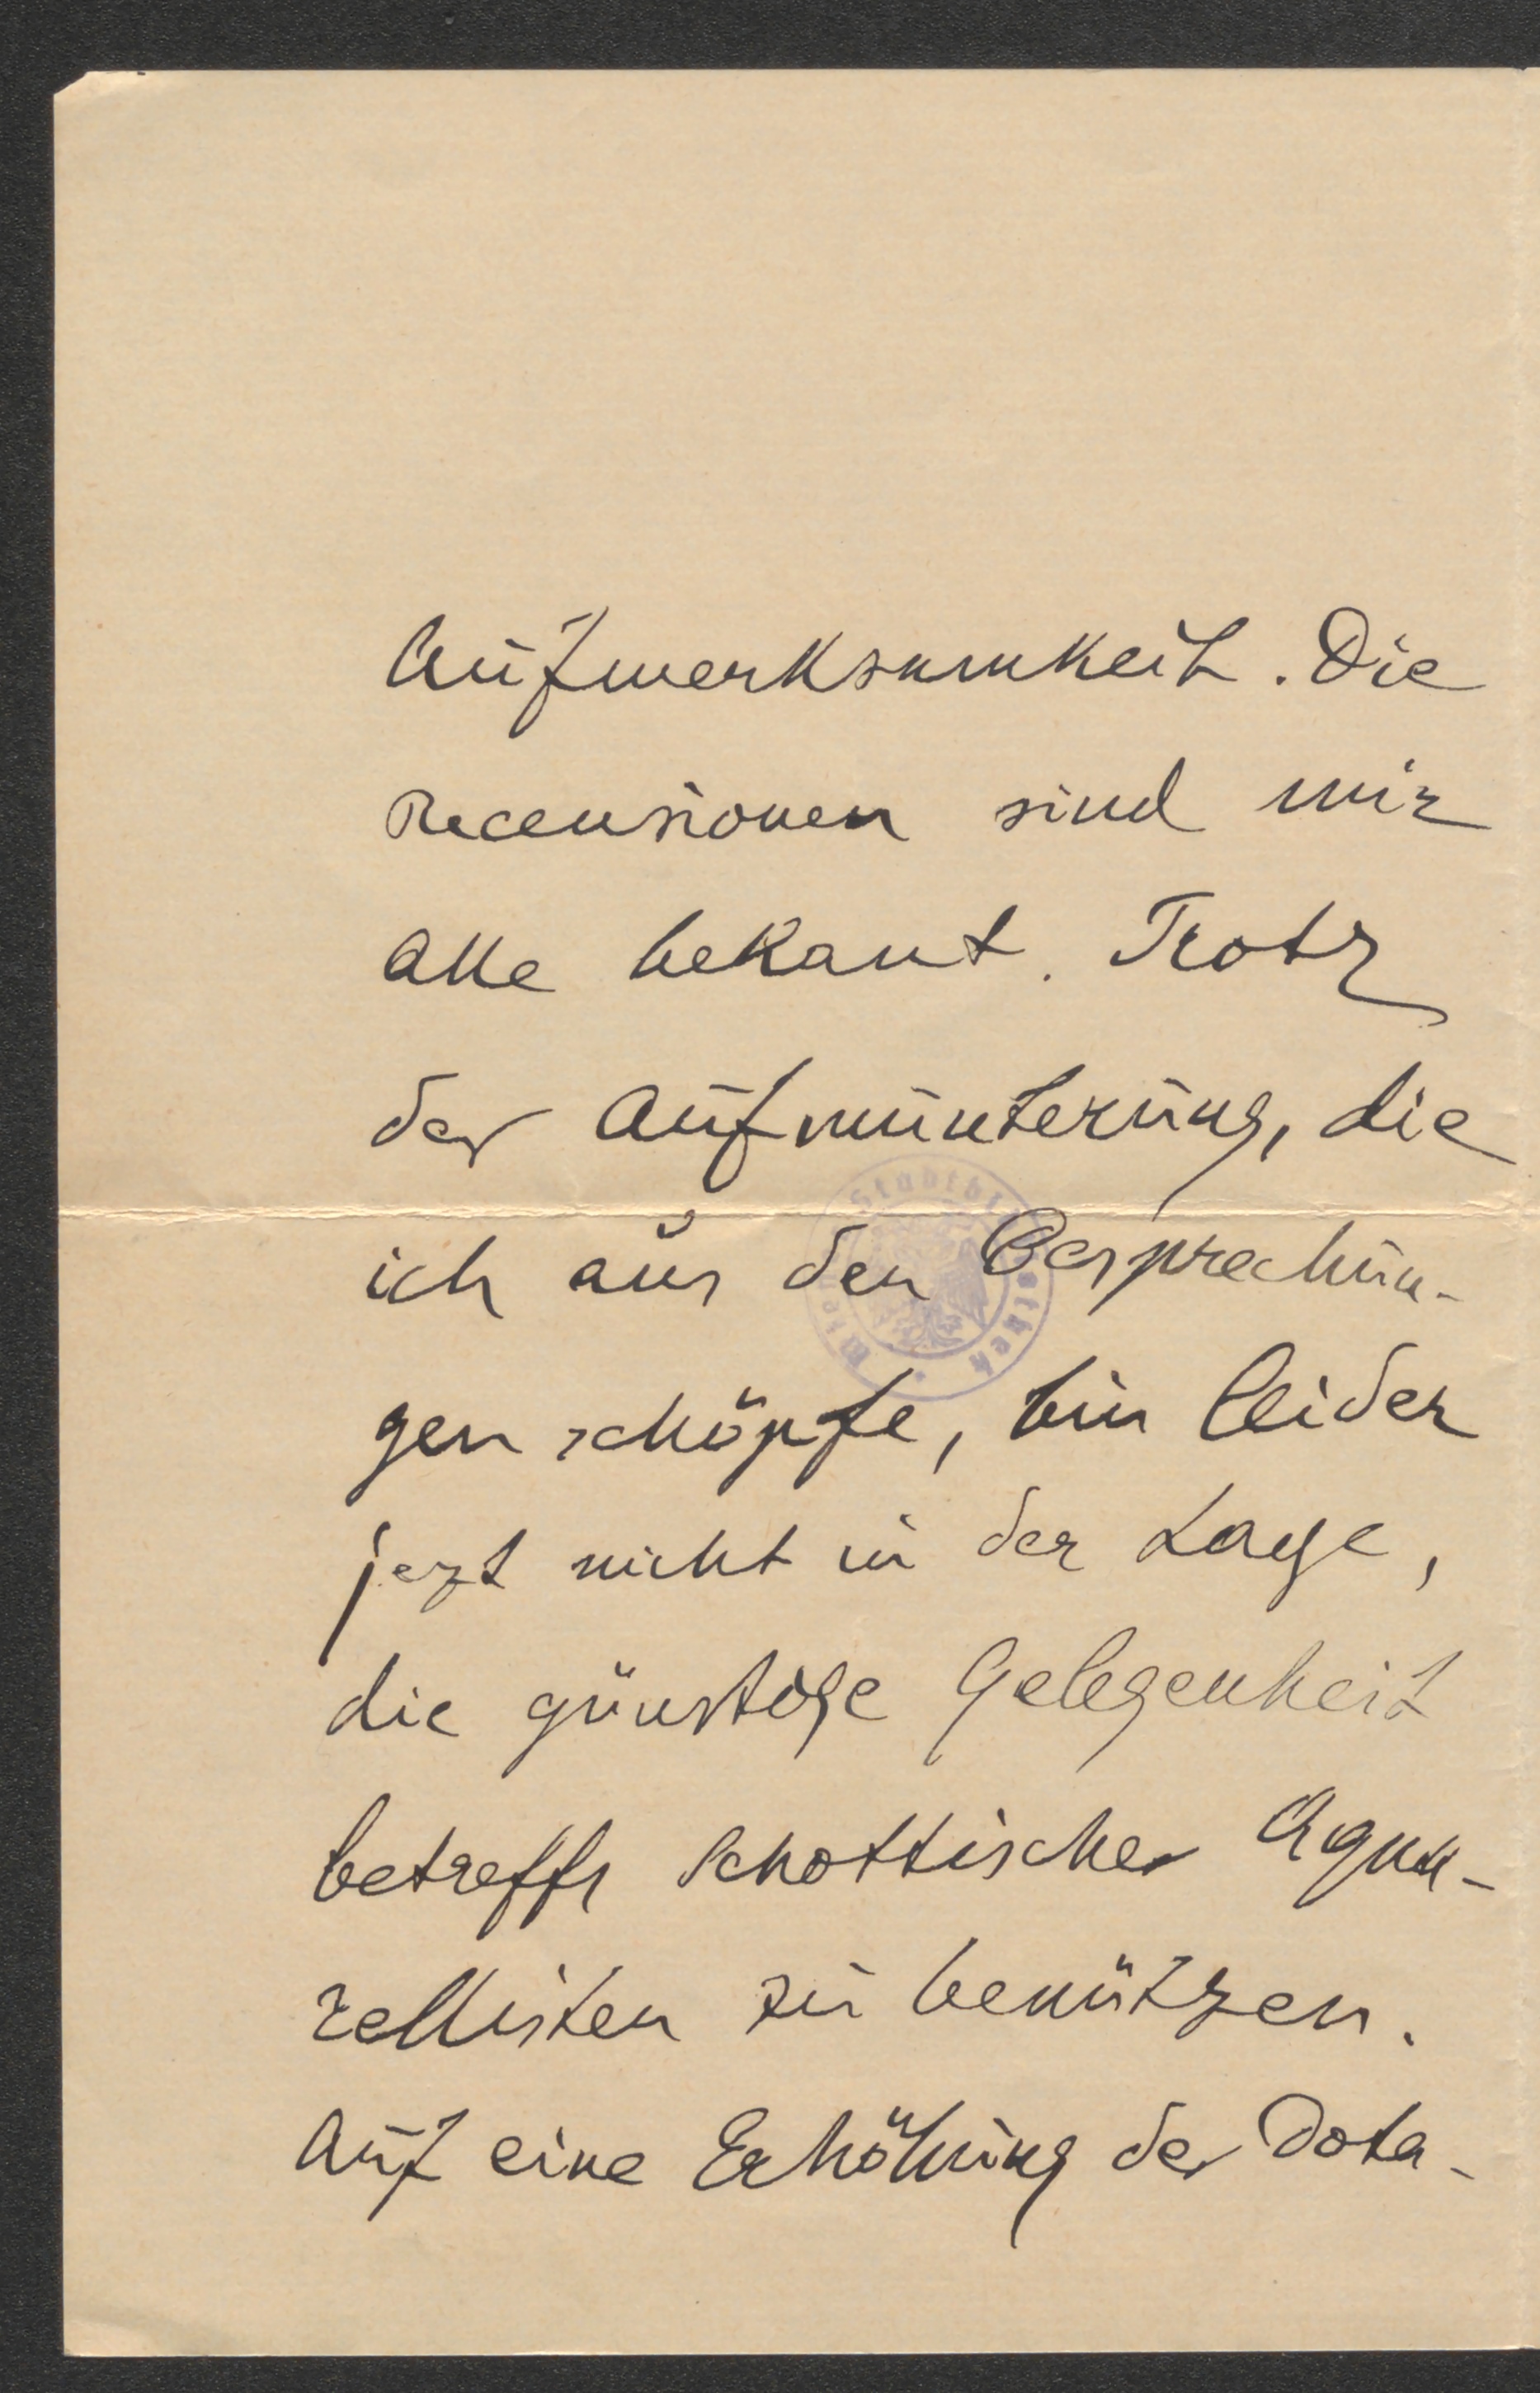 Aufmerksamkeit. Die
Recensionen sind mir
alle bekant. Trotz
der Aufmunterung, die
ich aus den Besprechun-
gen schöpfe, bin leider
jezt nicht in der Lage,
die günstige Gelegenheit
betreffs Schottischer Aqua-
rellisten zu benützen.
Auf eine Erhöhung der Dota-